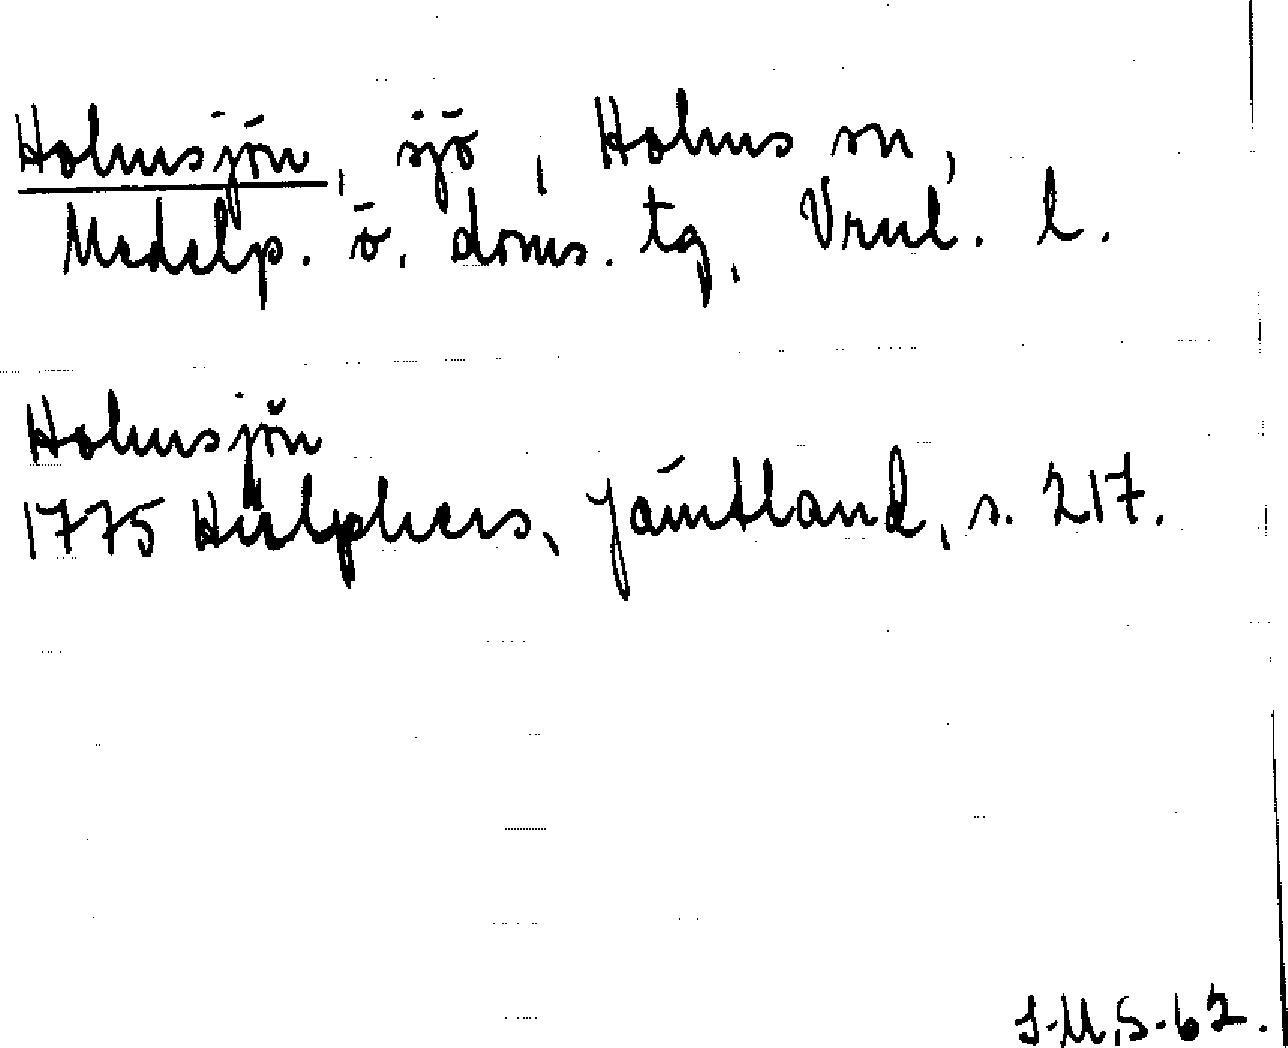 Holmsjön, sjö, Holms sn,
Medelp. ö. doms. tg, Vrnl. l.
Holmsjön
1775 Hülphers, Jämtland, s. 217.
J.M.S. 62.